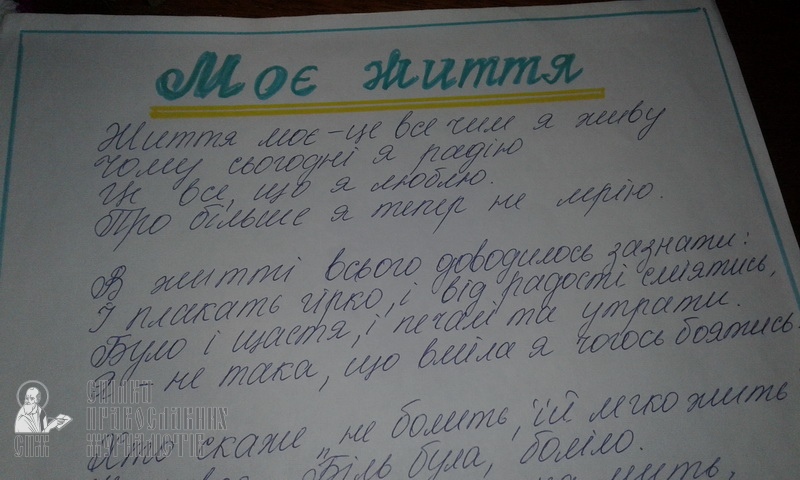 Моє життя
Життя моє – це все чим я живу
Чому сьогодні я радію
Це все, що я люблю.
Про більше я тепер не мрію.
В житті всього доводилось зазнати:
І плакать гірко, і від радості сміятись,
Було і щастя, і печалі та утрати.
Я – не така, що вміла я чогось боятись.
Хто скаже „не болить, їй легко жить
Біль була, боліло.
СПІЛКА
ПРАВОСЛАВНИХ
ЖУРНАЛІСТІВ
СПЖ